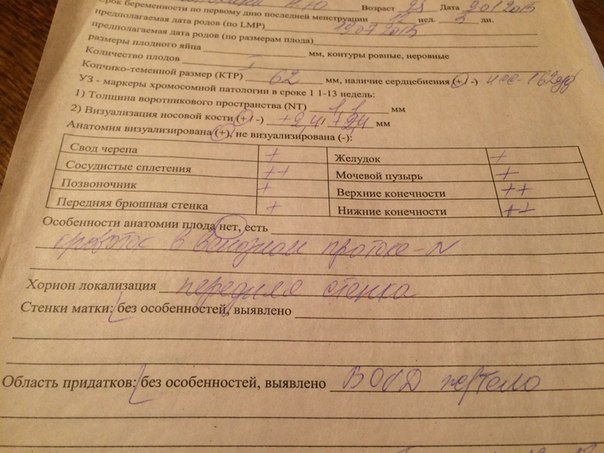 Возраст 25 Дата
срок беременности по первому дню последней менструации 11 нед. 5 дн.
предполагаемая дата родов (по LMP) 19.07.2015
предполагаемая дата родов (по размерам плода)
размеры плодного яйца мм, контуры ровные, неровные
Количество плодов
Копчико-теменной размер (КТР) 62 мм, наличие сердцебиения (+ -)
УЗ - маркеры хромосомной патологии в сроке 1 1-13 недель:
1) Толщина воротникового пространства (NT) 1,1 мм
2) Визуализация носовой кости (+ -) мм
Анатомия визуализирована (+), не визуализирована (-):
Свод черепа + Желудок +
Сосудистые сплетения ++ Мочевой пузырь +
Позвоночник + Верхние конечности ++
Передняя брюшная стенка + Нижние конечности ++
Особенности анатомии плода нет, есть
кровоток в венозном протоке-N
Хорион локализация передняя стенка
Стенки матки: без особенностей, выявлено
Область придатков: без особенностей, выявлено